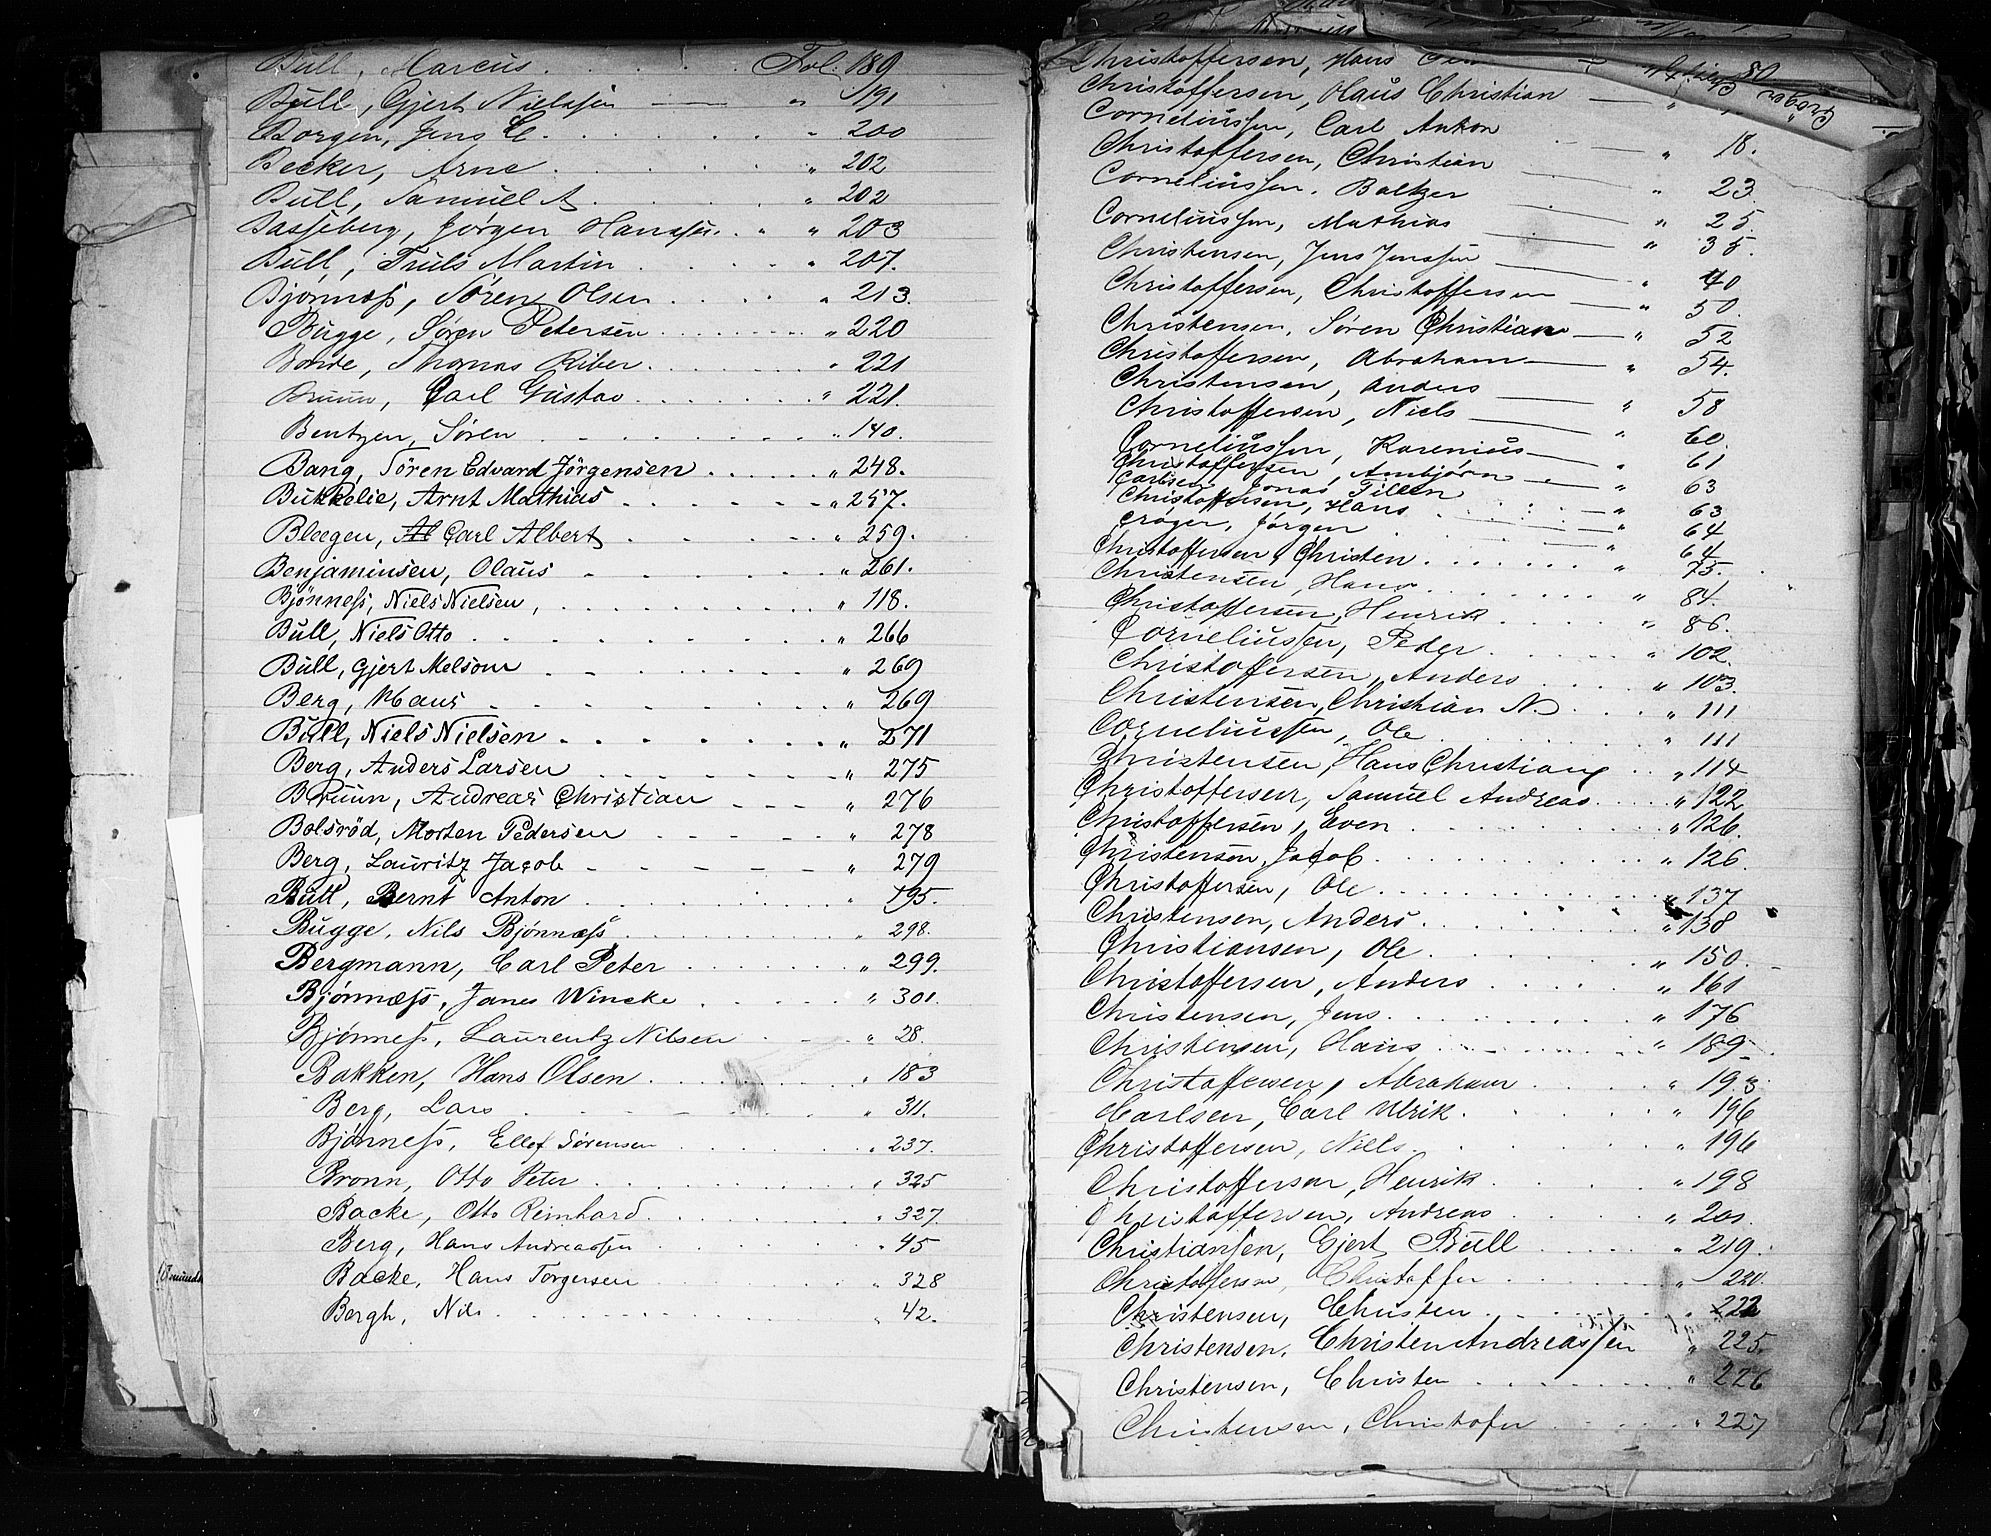 Bull, Marcus . . . . . Fol. 189
Bull, Gjert Nielssen — — " 191
Borgen, Jens C. . . . . . " 200
Becker, Arne . . . . . " 202
Bull, Samuel A . . . . . " 202
Basseberg, Jørgen Hanssen . . " 203
Bull, Truls Martin . . . . " 207.
Bjønnæss, Søren Olsen . . . . " 213.
Bugge, Søren Petersen . . . . " 220
Borde, Thomas Riber . . . . " 221
Bruun, Carl Gustav . . . . " 221.
Bentzen, Søren . . . . . " 140.
Bang, Sören Edvard Jörgensen . . . . " 248.
Bukkelie, Arnt Mathias . . . . " 257.
Bleegen, Al Carl Albert . . . . " 259.
Benjaminsen, Olaus . . . . " 261.
Bjönness, Niels Nielsen, . . . . " 118.
Bull, Niels Otto . . . . . " 266
Bull, Gjert Melsom . . . . " 269
Berg, Maur . . . . . " 269
Bull, Niels Nielsen . . . . " 271
Berg, Anders Larsen . . . . " 275
Bruun, Andreas Christian . . . " 276
Bolsröd, Morten Pedersen . . . " 278
Berg, Lauritz Jacob . . . . " 279
Bull, Bernt Anton . . . . " 195.
Bugge, Nils Bjønnæss . . . . " 298.
Bergmann, Carl Peter . . . . " 299.
Bjønnæss, Janes Wincke . . . . " 301.
Bjønness, Laurentz Nilsen . . " 28.
Bakken, Hans Olsen . . . . " 183
Berg, Lars . . . . . " 311.
Bjønness, Ellef Sørensen . . . . " 237.
Bronn, Otto Peter . . . . " 325
Backe, Otto Reinhard . . . . " 327
Berg, Hans Andreassen . . . . " 45
Backe, Hans Torgersen . . . . " 328
Bergh, Nils . . . . . " 42.
Christoffersen, Hans
Christoffersen, Olaus Christian — "
Corneliussen, Carl Anton
Christoffersen, Christian — " 18.
Corneliussen, Baltzer — " 23.
Corneliussen, Mathias — " 25.
Christensen, Jens Jenssen — " 35.
Christoffersen, Christoffersen — " 40
Christensen, Søren Christian — " 50.
Christoffersen, Abraham — " 52
Christensen, Anders — " 54.
Christoffersen, Niels — " 58
Corneliussen, Karenius — " 60.
Christoffersen, Anbjørn — " 61
Carlsen, Jonas Tillen " 63
Christoffersen, Hans . . . " 63
Crøger, Jørgen — " 64
Christoffersen, Christen . . . . " 64
Christensen, Hans . . . . " 75.
Christoffersen, Henrik . . . . " 84.
Corneliussen, Peder . . . . " 86.
Christoffersen, Anders . . . . " 102.
Christensen, Christian N. . . . " 103.
Corneliussen, Ole . . . . " 111
Christensen, Hans Christian . . " 111
Christoffersen, Samuel Andreas . . . " 114
Christoffersen, Even . . . . " 122
Christensen, Jacob . . . . " 126.
Christoffersen, Ole . . . . " 126
Christensen, Anders . . . . " 137
Christiansen, Ole . . . . " 138
Christoffersen, Anders . . . . " 150.
Christensen, Jens . . . . " 161
Christensen, Hans . . . . " 176
Christoffersen, Abraham . . . . " 189
Carlsen, Carl Ulrik . . . . " 193.
Christoffersen, Niels . . . . " 196
Christoffersen, Henrik . . . . " 196
Christoffersen, Andreas . . . . " 198
Christiansen, Gjert Bull . . . . " 201.
Christoffersen, Christoffer . . . . " 219.
Christensen, Christen . . . . " 220.
Christensen, Christen Andreassen " 222
Christensen, Christen . . . . " 225.
Christensen, Christofer . . . . " 226
" 227
Crøger